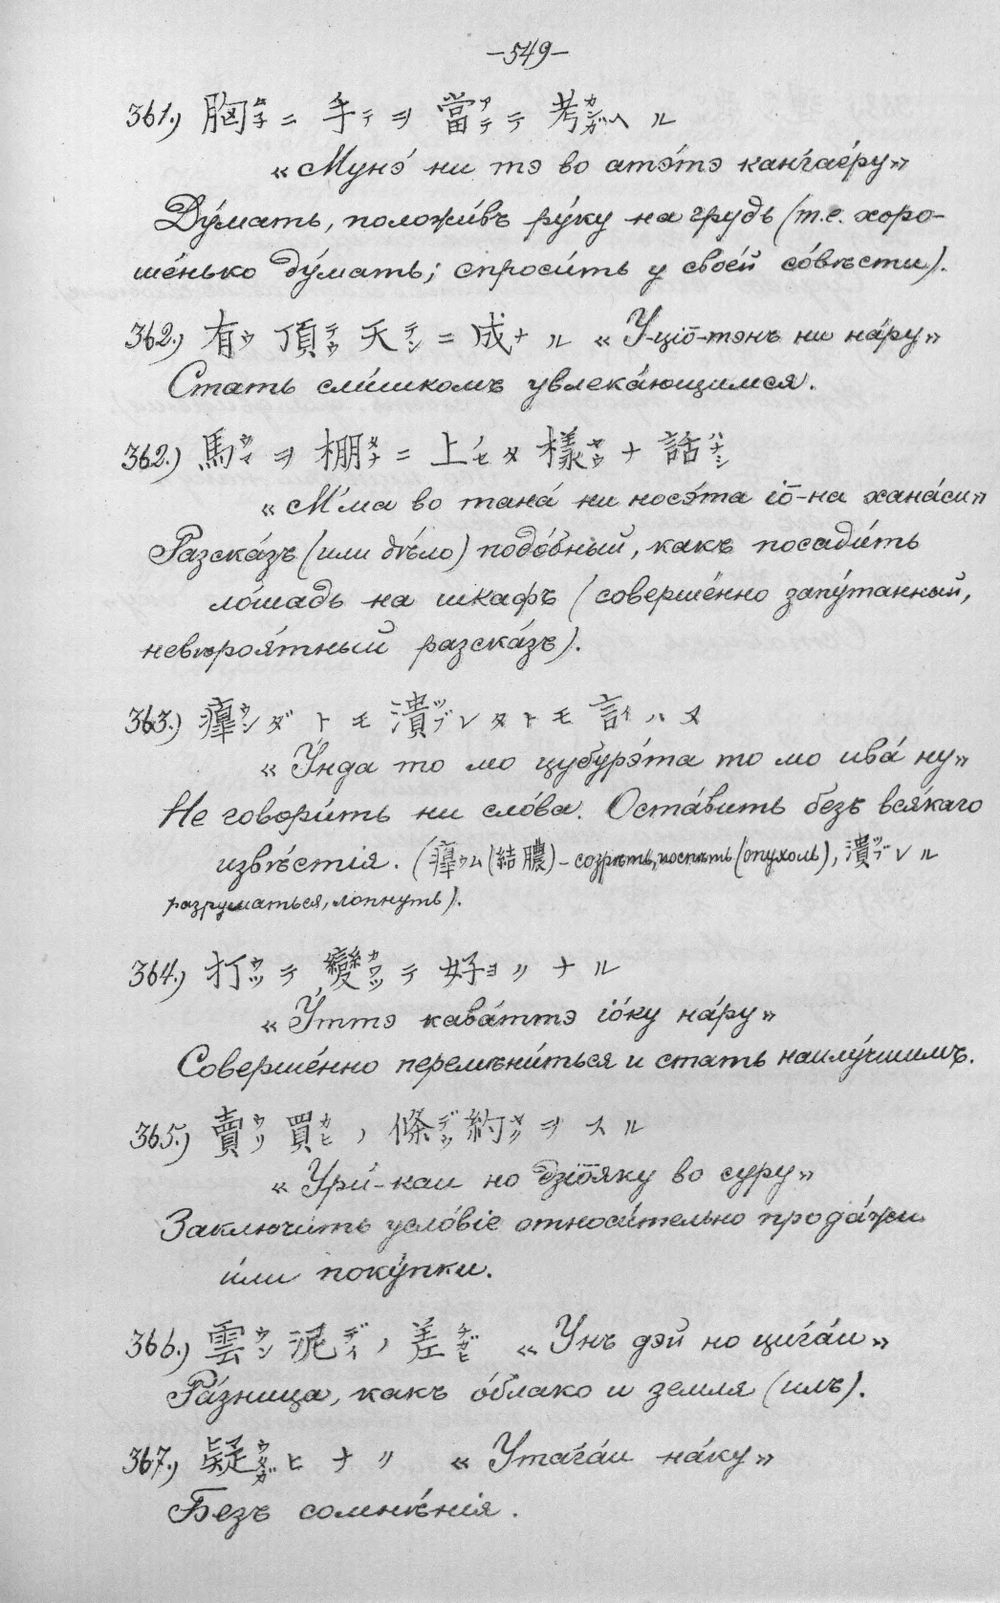 —549—
361.) 胸ムネニ 手テヲ 當アテテ 考カンガヘル
«Мунэ́ ни тэ во атэ́тэ канга́е́ру»
Ду́мать, положи́въ ру́ку на грудь (т.е. хоро-
ше́нько ду́мать; спроси́ть у свое́й со́вѣсти).
362.) 有ウ 頂チヤウ 天テン ニ 成ナル «У-ціо̄-тэнъ ни на́ру»
Стать сли́шкомъ увлека́ющимся.
362.) 馬ウマ ヲ 棚タナ ニ 上ノセタ 樣ヤウナ 話ハナシ
«М́ма во тана́ ни носэ́та іо̄-на хана́си»
Разска́зъ (или дѣ́ло) подо́бный, какъ посади́ть
ло́шадь на шкафъ (соверше́нно запу́танный,
невѣроя́тный разска́зъ).
363.) ウンダ トモ 潰ツブレタトモ 言イハヌ
«У́нда то мо цубурэ́та то мо ива́ ну»
Не говори́ть ни сло́ва. Оста́вить безъ вся́каго
извѣ́стія. (ウム (結膿) – созрѣть, поспѣть (опухоль), 潰ツブレル
разрушаться, лопнуть).
364.) 打ウツテ 變カワツテ 好ヨクナル
«У́ттэ кава́ттэ іо́ку на́ру»
Соверше́нно перемѣни́ться и стать наилу́чшимъ.
365.) 賣ウリ 買カヒノ 條デウ約ヤク ヲ スル
«Ури́-каи но дзіо̄яку во суру»
Заключи́ть усло́віе относи́тельно прода́жи
и́ли поку́пки.
366.) 雲ウン 泥デイノ 差チガヒ «Унъ дэй но цига́и»
Ра́зница, какъ о́блако и земля (илъ).
367.) 疑ウタガヒ ナク «Утага́и на́ку»
Безъ сомнѣ́нія.